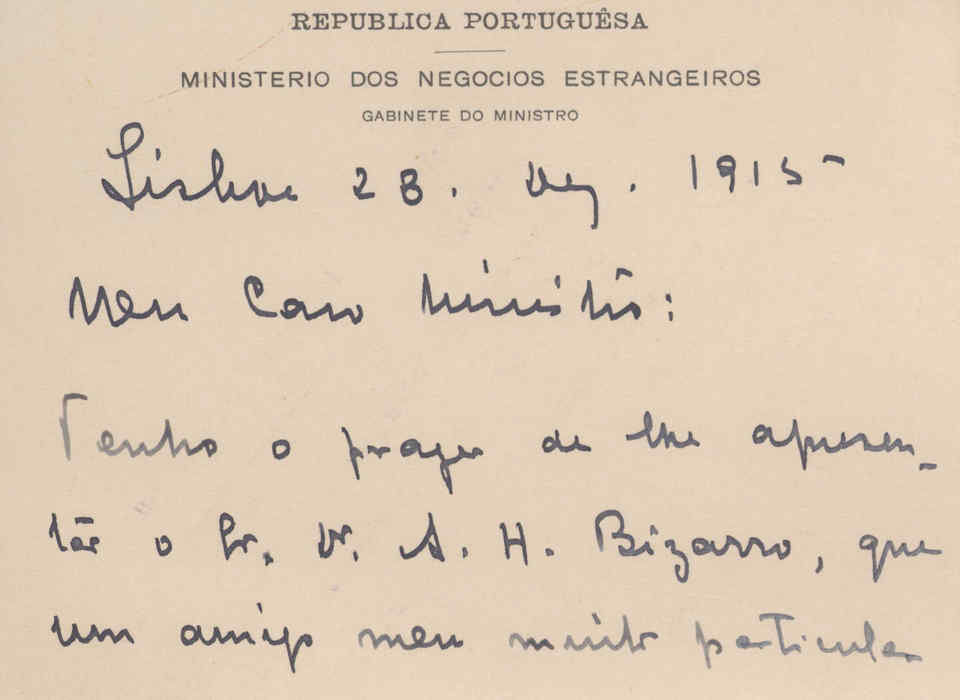 REPUBLICA PORTUGUÊSA
MINISTERIO DOS NEGOCIOS ESTRANGEIROS
GABINETE DO MINISTRO
Lisboa 28. Dez. 1915
Meu Caro Ministro:
Tenho o prazer de lhe apresen-
tar o Sr. Dr. A. H. Bizarro, que
um amigo meu muito particular